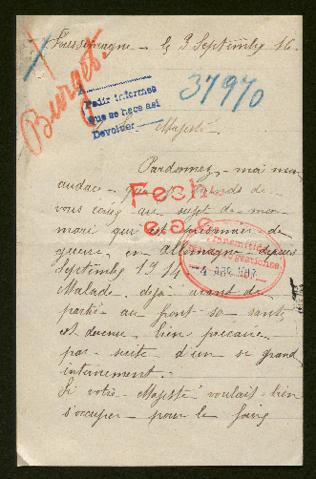 Foussemagne - le 9 Septembre 16.
Burgos.
37970
Pedir informes
que se hace asi
Devolver
Majesté.
Pardonnez-moi mon
audace que je prends de
vous au sujet de mon
mari qui est prisonnier de
guerre en Allemagne depuis
Septembre 1914.
Malade, déjà avant de
partir au front sa santé
est devenue bien précaire
par suite d'un si grand
internement.-
Si votre Majesté voulait bien
s'occuper pour le faire
Fech
Transmitido